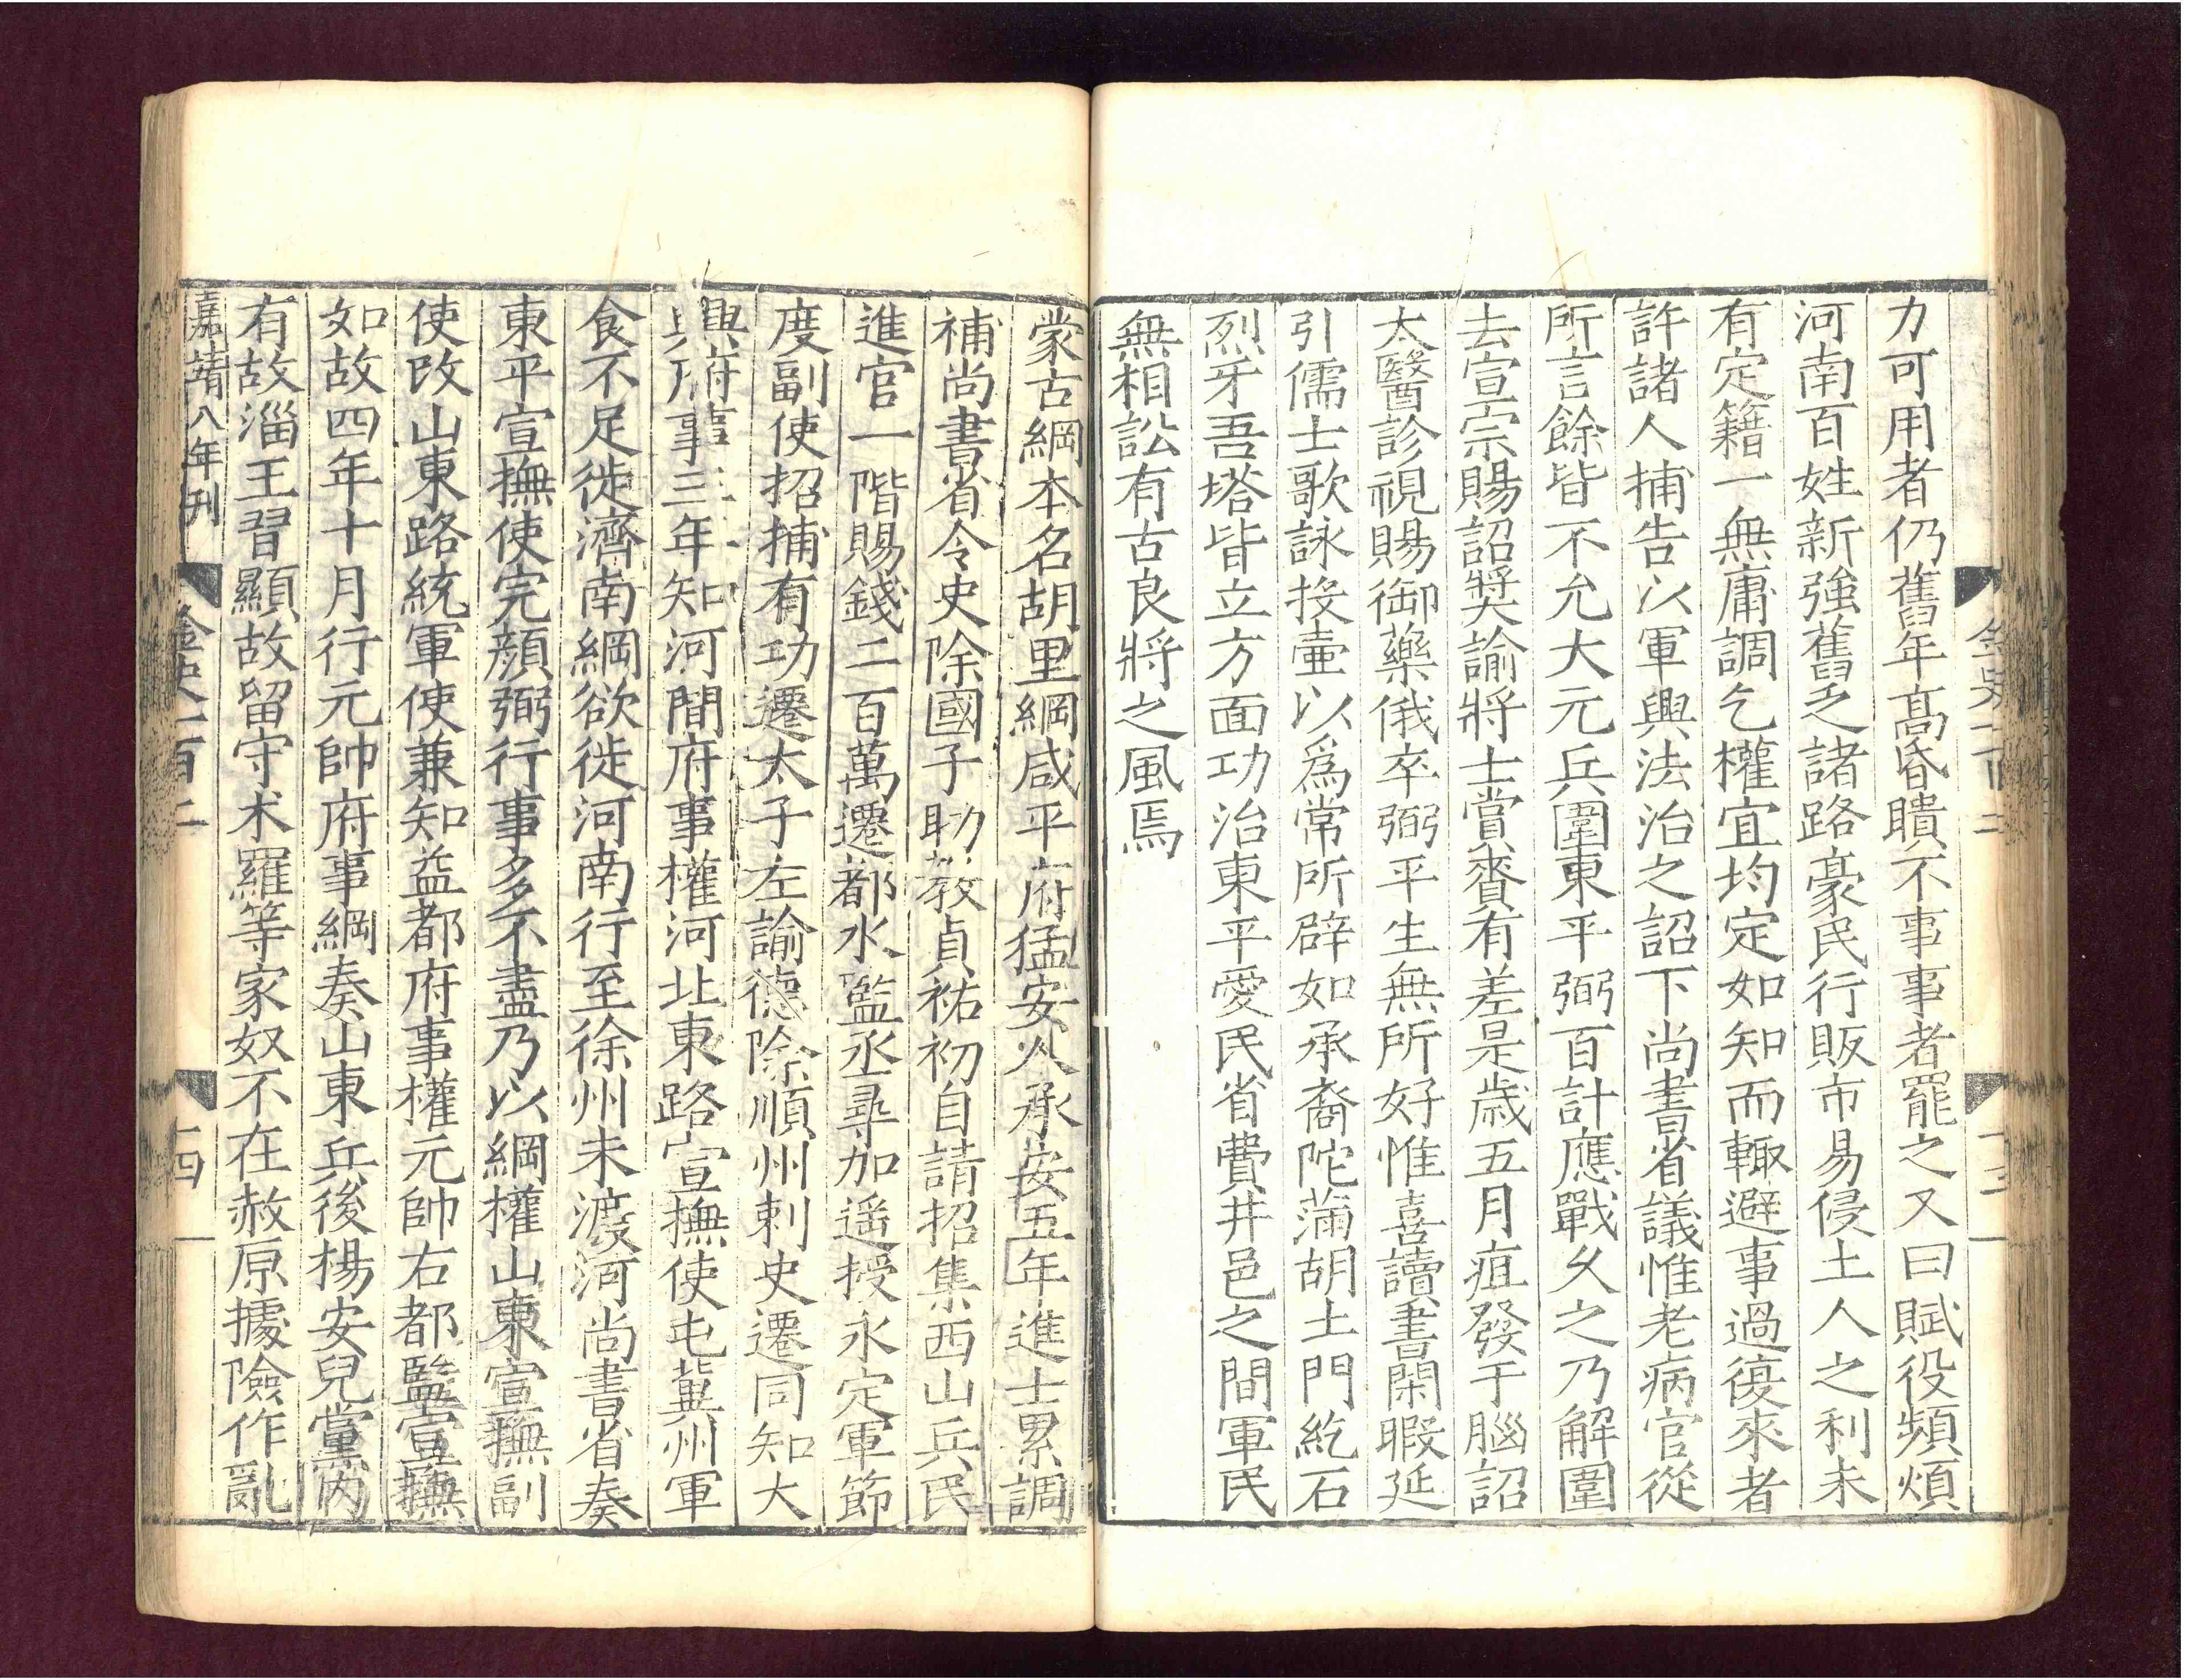 力可用者仍舊年高昏聵不事事者罷之又曰賦役頻煩
河南百姓新強舊乏諸路豪民行販市易侵土人之利未
有定籍一無庸調乞權宜均定如知而輙避事過後來者
許諸人捕告以軍興法治之詔下尚書省議惟老病官從
所言餘皆不允大元兵圍東平弼百計應戰久之乃解圍
去宣宗賜詔奬諭將士賞賚有差是歲五月疽發于腦詔
太醫診視賜御藥俄卒弼平生無所好惟喜讀書閑暇延
引儒士歌詠投壷以爲常所辟如承裔陀蒲胡土門紇石
烈牙吾塔皆立方面功治東平愛民省費井邑之間軍民
無相訟有古良將之風焉
蒙古綱本名胡里綱咸平府猛安人承安五年進士累調
補尚書省令史除國子助教貞祐初自請招集西山兵民
進官一階賜錢二百萬遷都水監丞尋加遥授永定軍節
度副使招捕有功遷太子左諭德除順州刺史遷同知大
興府事三年知河間府事權河北東路宣撫使屯冀州軍
食不足徙濟南綱欲徙河南行至徐州未渡河尚書省奏
東平宣撫使完顔弼行事多不盡乃以綱權山東宣撫副
使改山東路統軍使兼知益都府事權元帥右都監宣撫
如故四年十月行元帥府事綱奏山東兵後楊安兒黨内
有故淄王習顯故留守术羅等家奴不在赦原據險作亂
嘉靖八年刊
金史一百二
十四